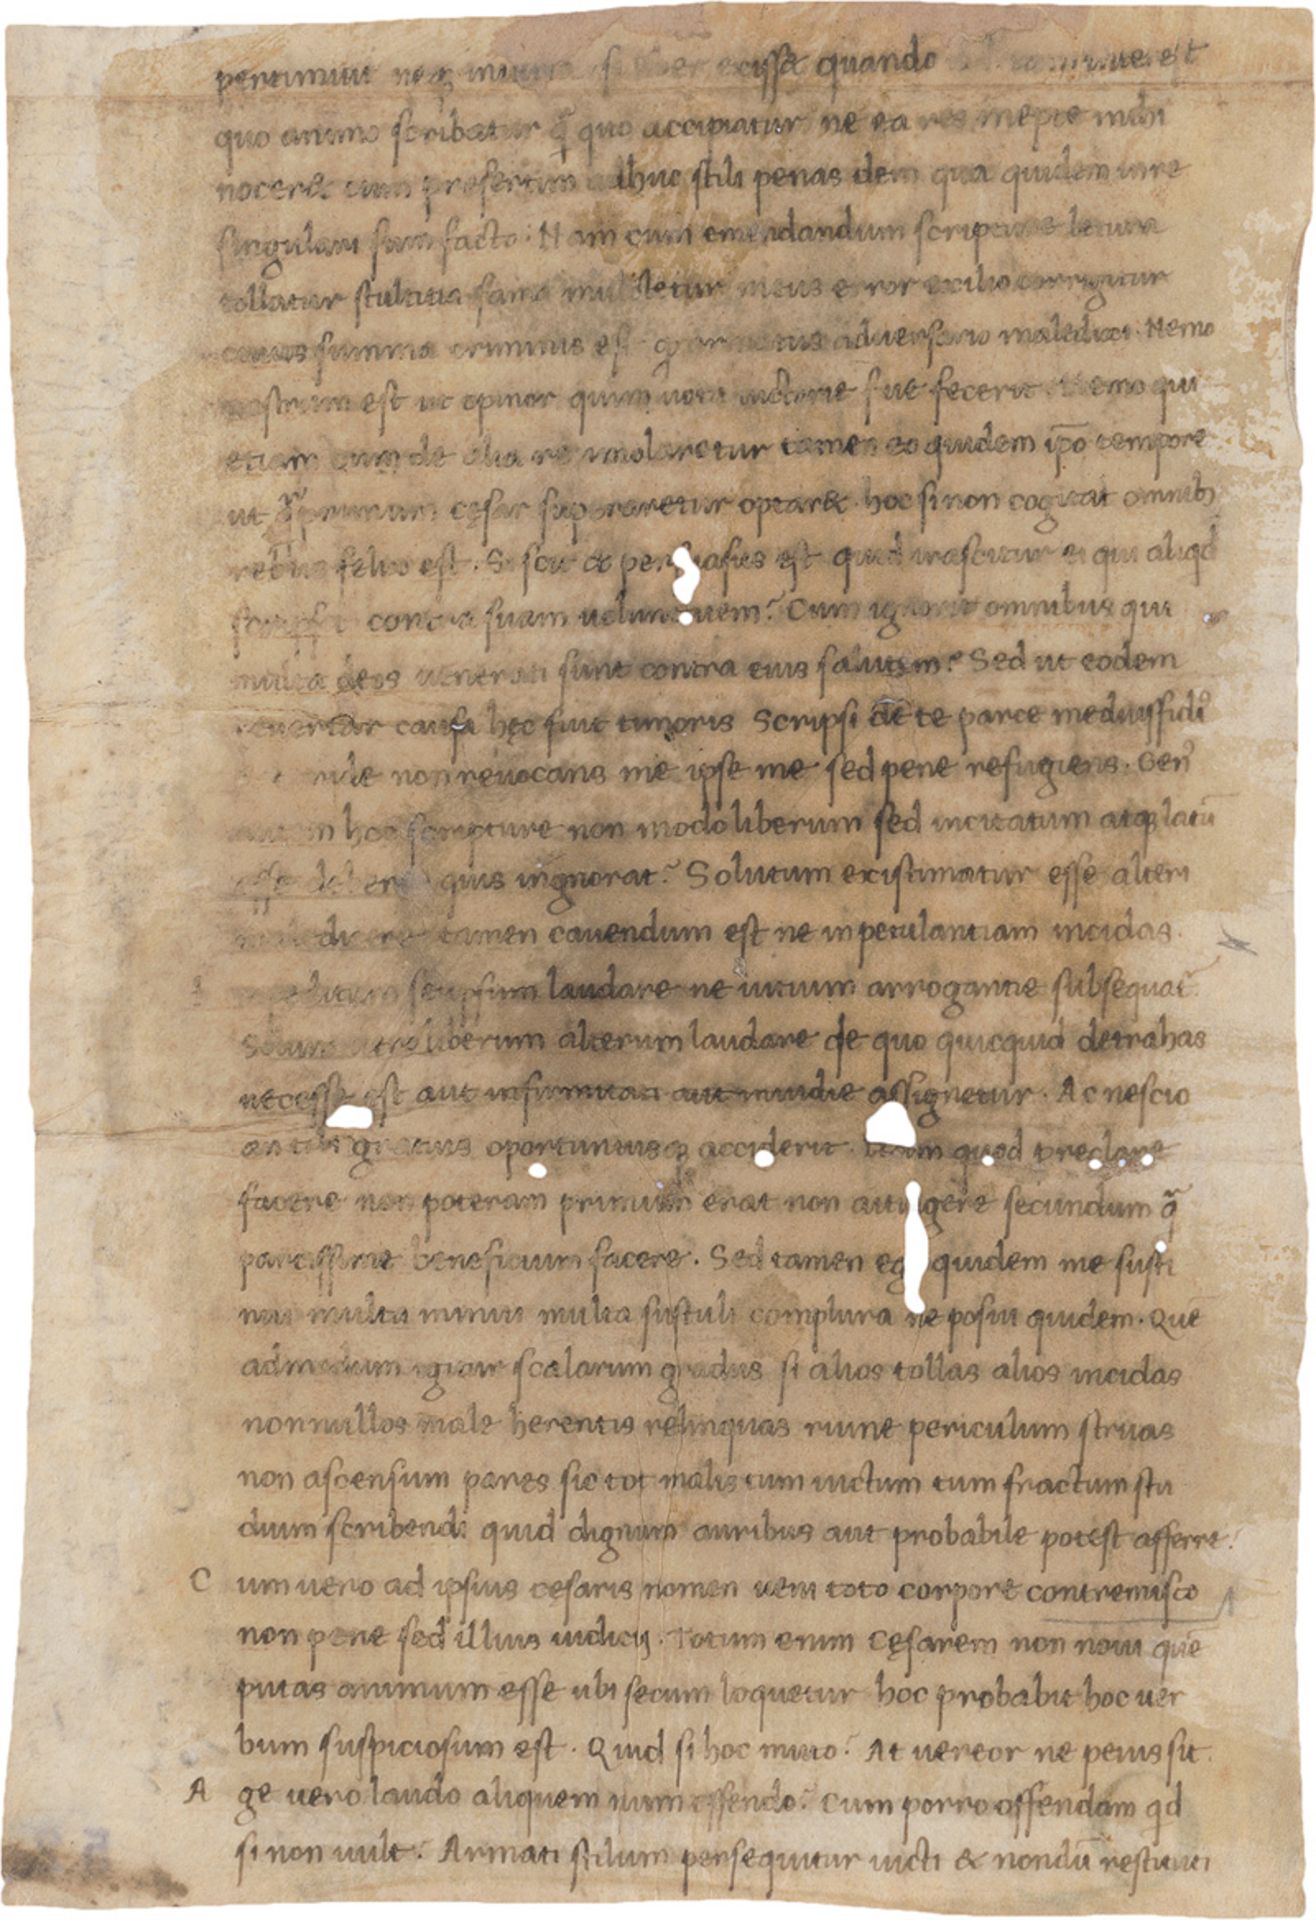 pertimuit neq; iniuria si exisse quando est
quo animo scribatur q̄ quo accipiatur ne ea res inepte mihi
noceret cum presertim adhuc stili penas dem qua quidem in re
singulari sum facto. Nam cum emendandum scripture litura
tollatur stultitia fama multetur meus error exilio corrigitur
cuius summa criminis est q armatus adversario maledixi. Nemo
nostrum est ut opinor quin vota victorie sue fecerit. Nemo qui
etiam cum de alia re imolaretur tamen eo quidem ip̄o tempore
ut q̄primum cęsar superaretur optaret. hoc si non cogitat omnib;
rebus felix est. Si scit et persuasus est quid irascitur ei qui aliqd
scripsit contra suam uoluntatem? Cum ignorit omnibus qui
multa deos uenerati sunt contra eius salutem? Sed ut eodem
reuertar causa hęc fuit timoris Scripsi de te parce mediusfidi
non reuocans me ipse me sed pene refugiens. Gen
autem hoc scripture non modo liberum sed incitatum atq; latū
esse debere quis ingnorat? Solutum existimatur esse alteri
maledicere tamen cauendum est ne in petulantiam incidas.
impeditum seipsum laudare ne uitium arrogantie subsequat
Solum uero liberum alterum laudare de quo quicquid detrahas
necesse est aut infirmitati aut inuidie assignetur. Ac nescio
an tibi gratius oportuniusq; acciderit. Nam quod preclare
facere non poteram primum erat non attingere secundum q̄
parcissime beneficium facere. Sed tamen ego quidem me susti
nui multa minui multa sustuli complura ne posui quidem. Quē
admodum igitur scalarum gradus si alios tollas alios incidas
nonnullos male herentis relinquas ruine periculum struas
non ascensum pares sic tot malis tum uictum tum fractum stu
dium scribendi quid dignum auribus aut probabile potest afferre?
C um uero ad ipsius cesaris nomen ueni toto corpore contremisco
non pene sed illius iudicij. Totum enim Cęsarem non noui quē
putas animum esse ubi secum loquetur hoc probabit hoc uer
bum suspiciosum est. Quid si hoc muto? At uereor ne peius sit.
A ge uero laudo aliquem num offendo? Cum porro offendam qd
si non uult? Armati stilum persequitur uicti & nondū restituti